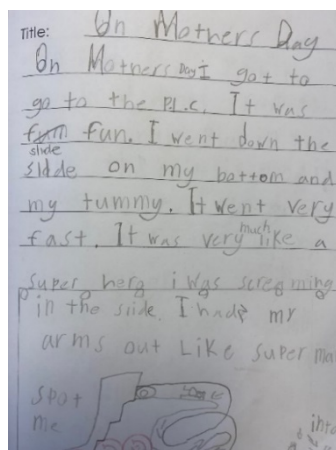 Title: On Mothers Day
On Mothers Day I got to
go to the P.l.c. It was
fun. I went down the
slide
slide on my bottom and
my tummy. It went very
fast. It was very much like a
super hero i was screming
in the slide. I had my
arms out Like super ma
spot
me
into